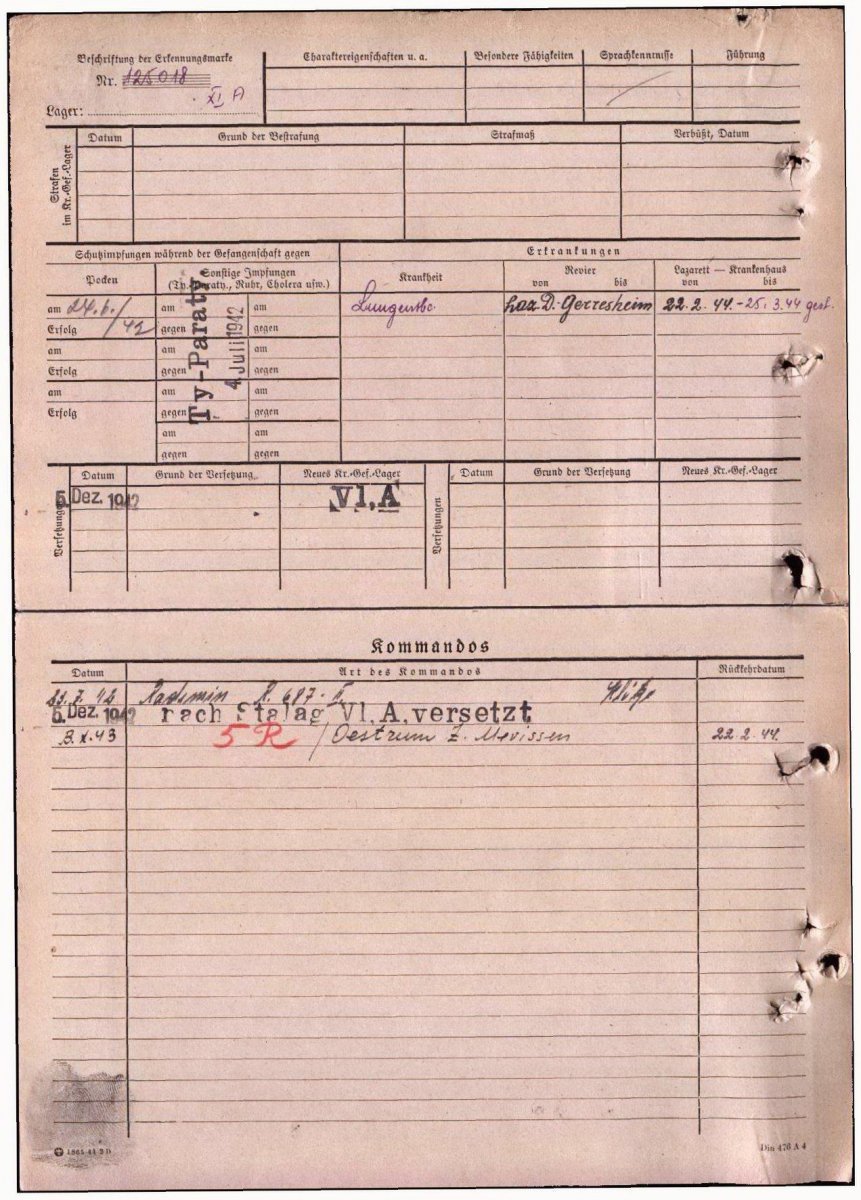 Beschriftung der Erkennungsmarke
Nr. 125018
XI A
Lager:
Charaktereigenschaften u. a.
Besondere Fähigkeiten
Sprachkenntnisse
Führung
Strafen im Kr.-Gef.-Lager
Datum
Grund der Bestrafung
Strafmaß
Verbüßt, Datum
Schutzimpfungen während der Gefangenschaft gegen
Erkrankungen
Pocken
Sonstige Impfungen
(Ty. Paraty., Ruhr, Cholera usw.)
Krankheit
Revier
von bis
Lazarett — Krankenhaus
von bis
am 24.6./42
Erfolg
am
Erfolg
am
Erfolg
am
gegen
am
gegen
am
gegen
am
gegen
Ty-Paraty.
4. Juli 1942
am
gegen
am
gegen
am
gegen
am
gegen
Lungentbc.
Laz D.-Gerresheim
22.2.44.-25.3.44 gest.
Versetzungen
Datum
Grund der Versetzung
Neues Kr.-Gef.-Lager
5. Dez. 1942
VI,A
Versetzungen
Datum
Grund der Versetzung
Neues Kr.-Gef.-Lager
Kommandos
Datum
Art des Kommandos
Rückkehrdatum
R. 687
5. Dez. 1942 nach Stalag VI, A, versetzt
3.X.43 5 R / Oestrum Z. Mevissen 22.2.44.
1865 41 2 D
Din 476 A 4